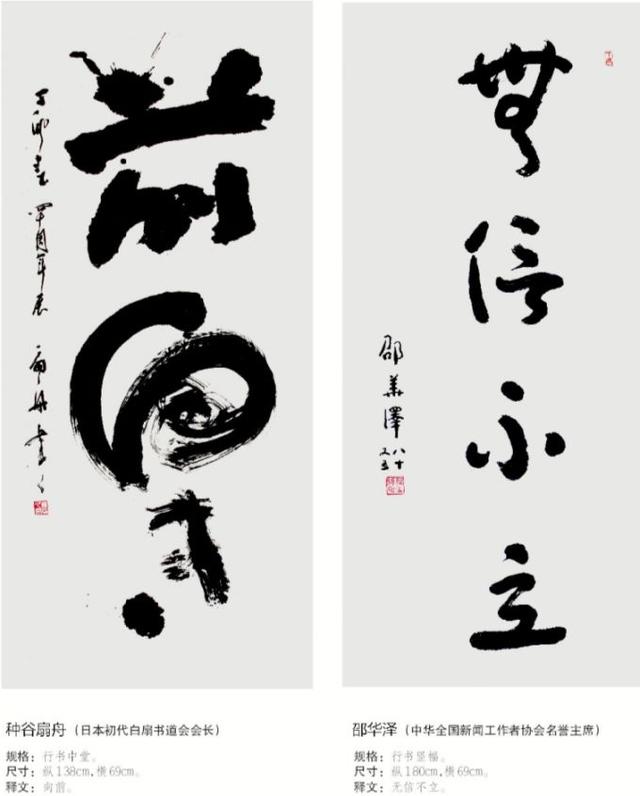 前
無信不立
邵華澤
八十
又五
种谷扇舟（日本初代白扇书道会会长）
规格：行书中堂。
尺寸：纵138cm，横69cm。
释文：向前。
邵华泽（中华全国新闻工作者协会名誉主席）
规格：行书竖幅。
尺寸：纵180cm，横69cm。
释文：无信不立。